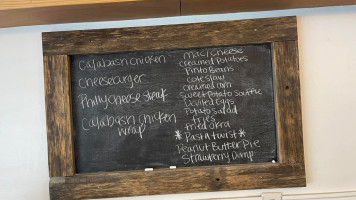 Calabash Chicken
Cheeseburger
Philly Cheese Steak
Calabash Chicken
Wrap
Mac/Cheese
Creamed Potatoes
Pinto Beans
Coleslaw
Creamed Corn
Sweet Potato Souffle
Deviled Eggs
Potato Salad
Fries
Fried Okra
*Pasta Twist*
Peanut Butter Pie
Strawberry Dump